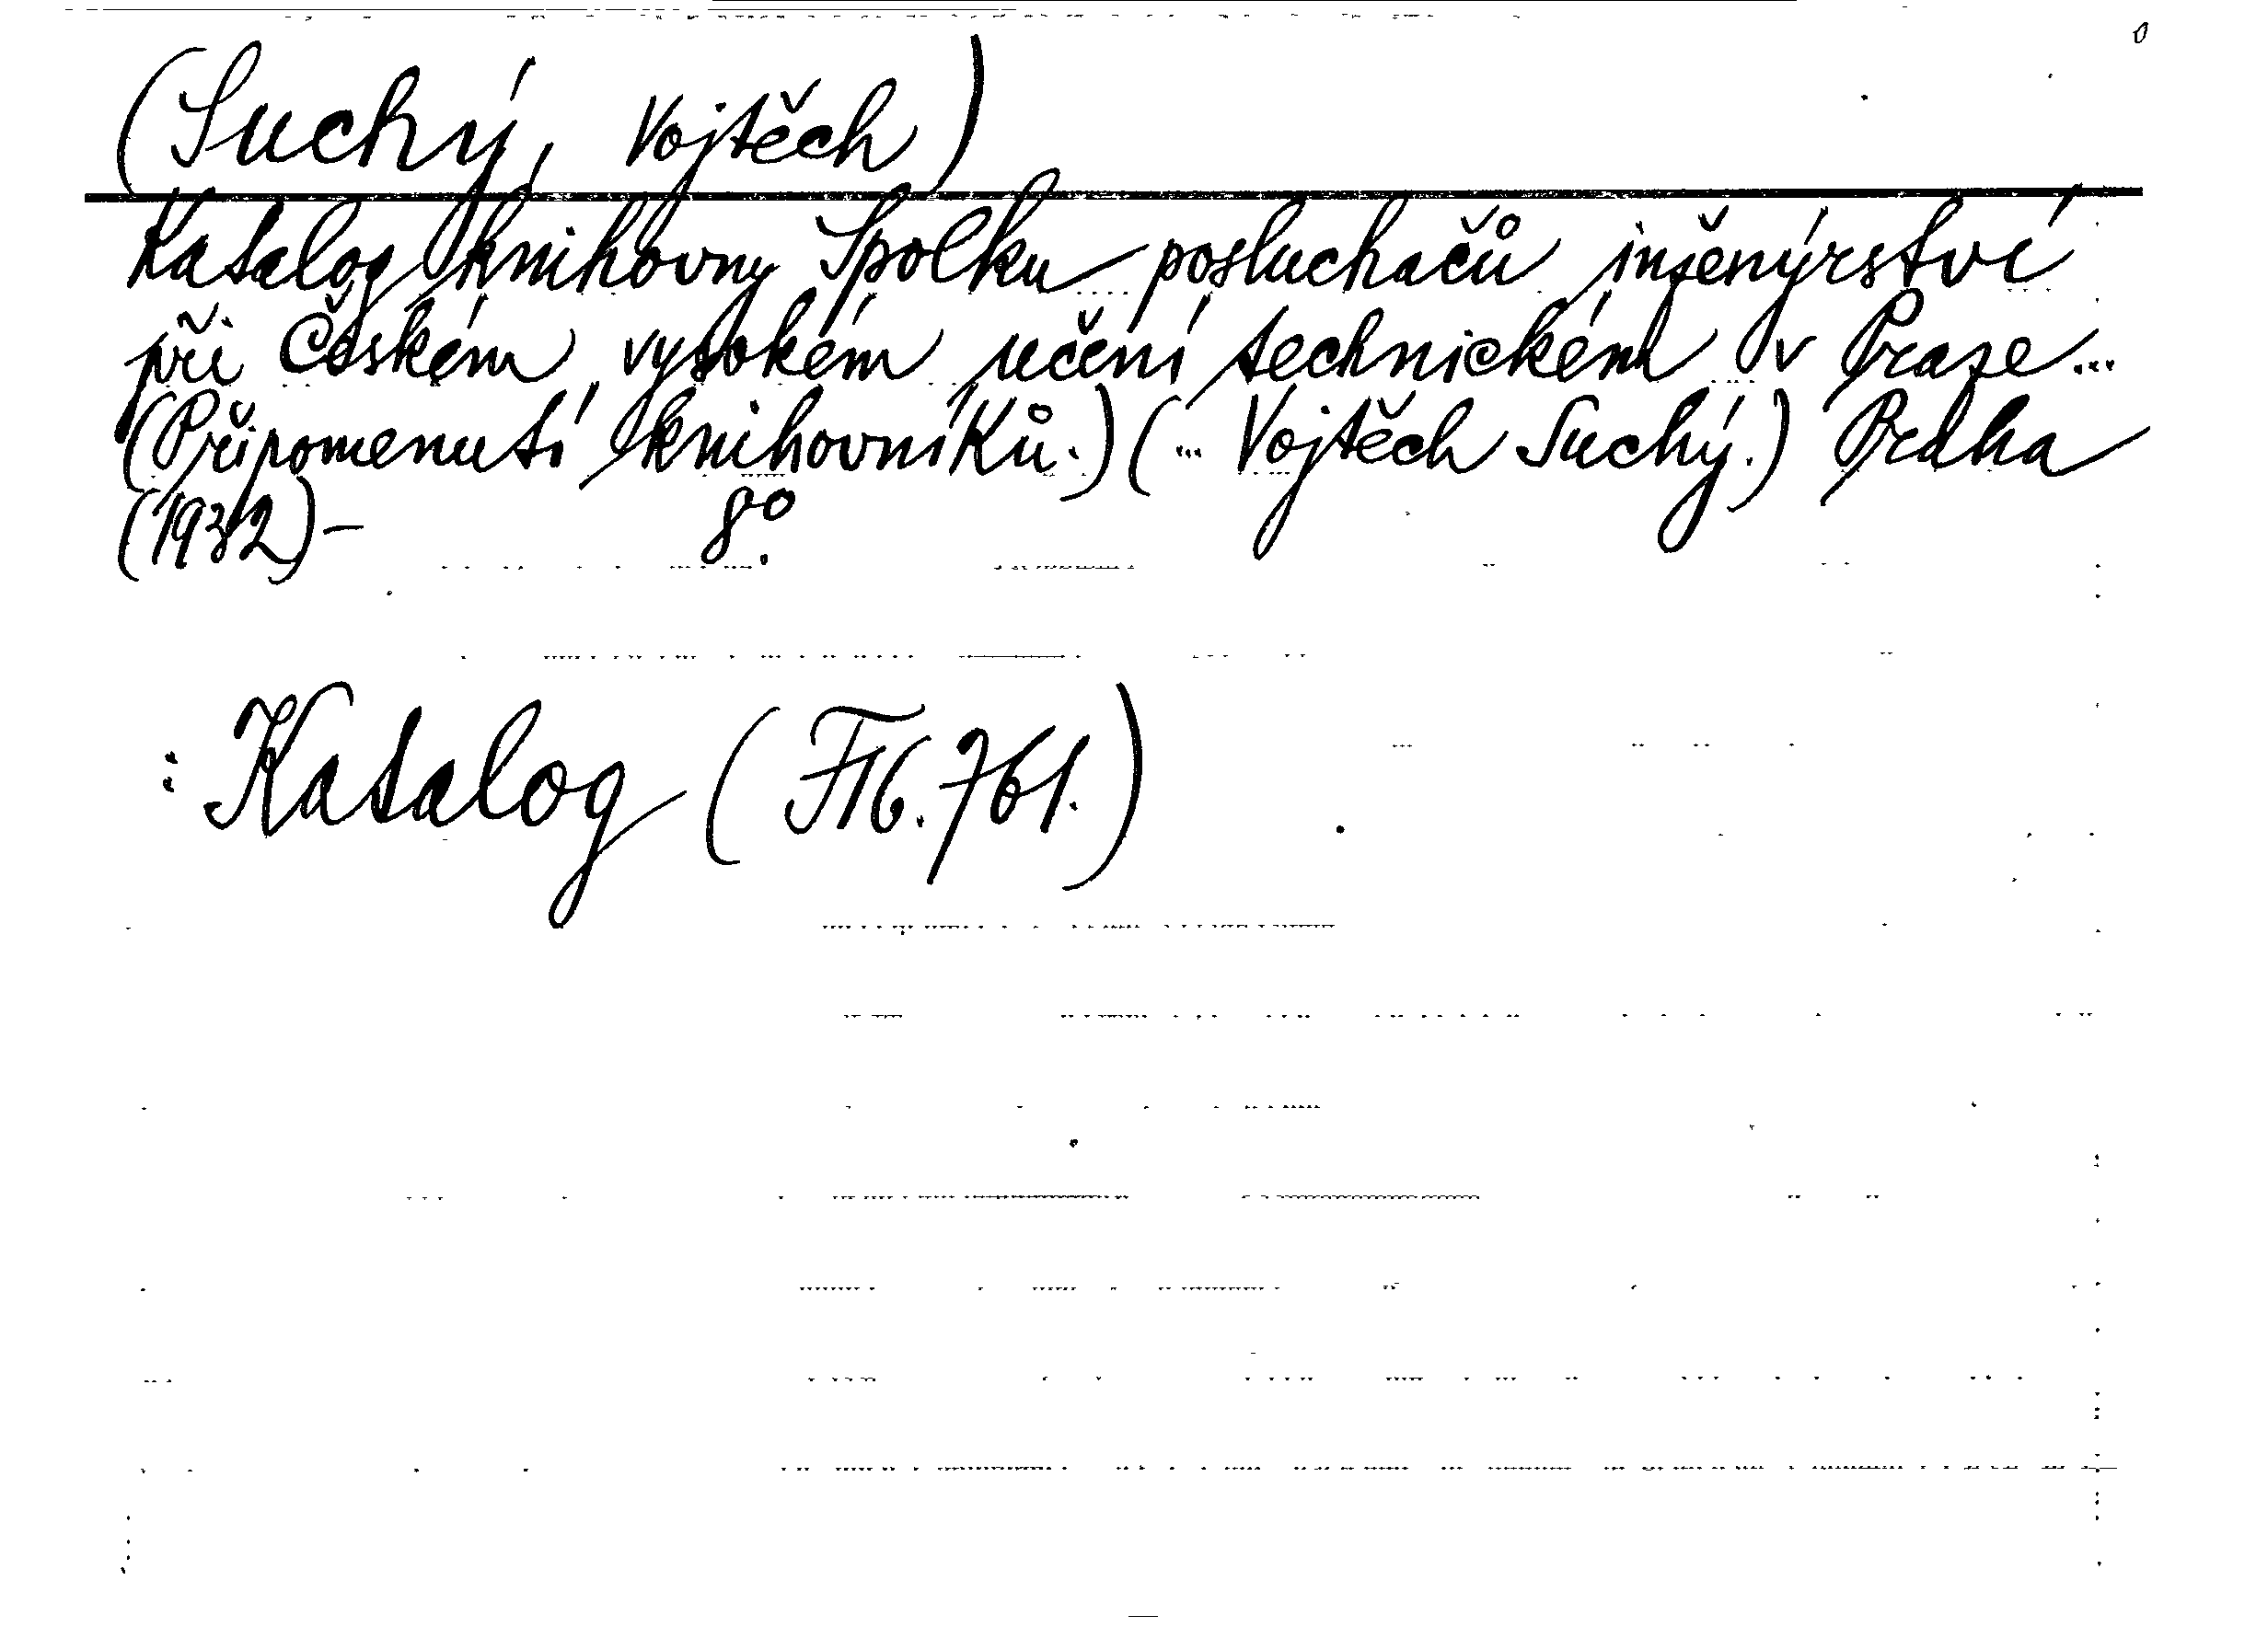 (Suchý, Vojtěch)
Katalog knihovny Spolku posluchačů inženýrství
při Českém vysokém učení technickém v Praze...
(Připomenutí knihovníků.) (... Vojtěch Suchý.) Praha
(1932)- 8°.
: Katalog (F16.761.)